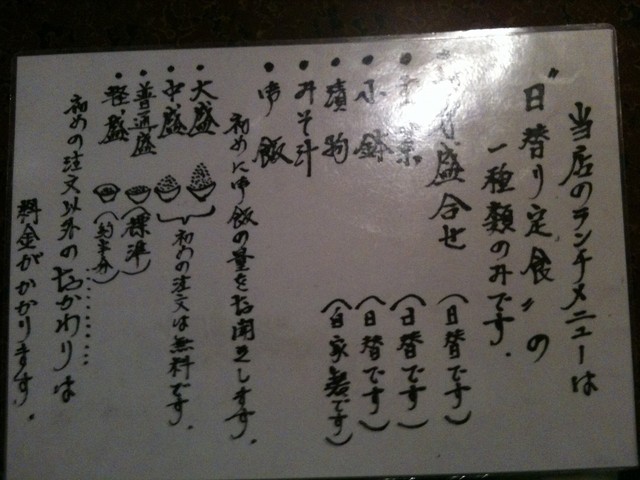 当店のランチメニューは
"日替り定食"の
一種類のみです.
盛合せ (日替です)
・主菜 (日替です)
・小鉢 (日替です)
・漬物 (自家製です)
・みそ汁
・御飯
初めに御飯の量をお聞きします.
・大盛
・中盛
初めの注文は無料です.
・普通盛 (標準)
・軽盛 (約半分)
初めの注文以外のおかわりは
料金がかかります.